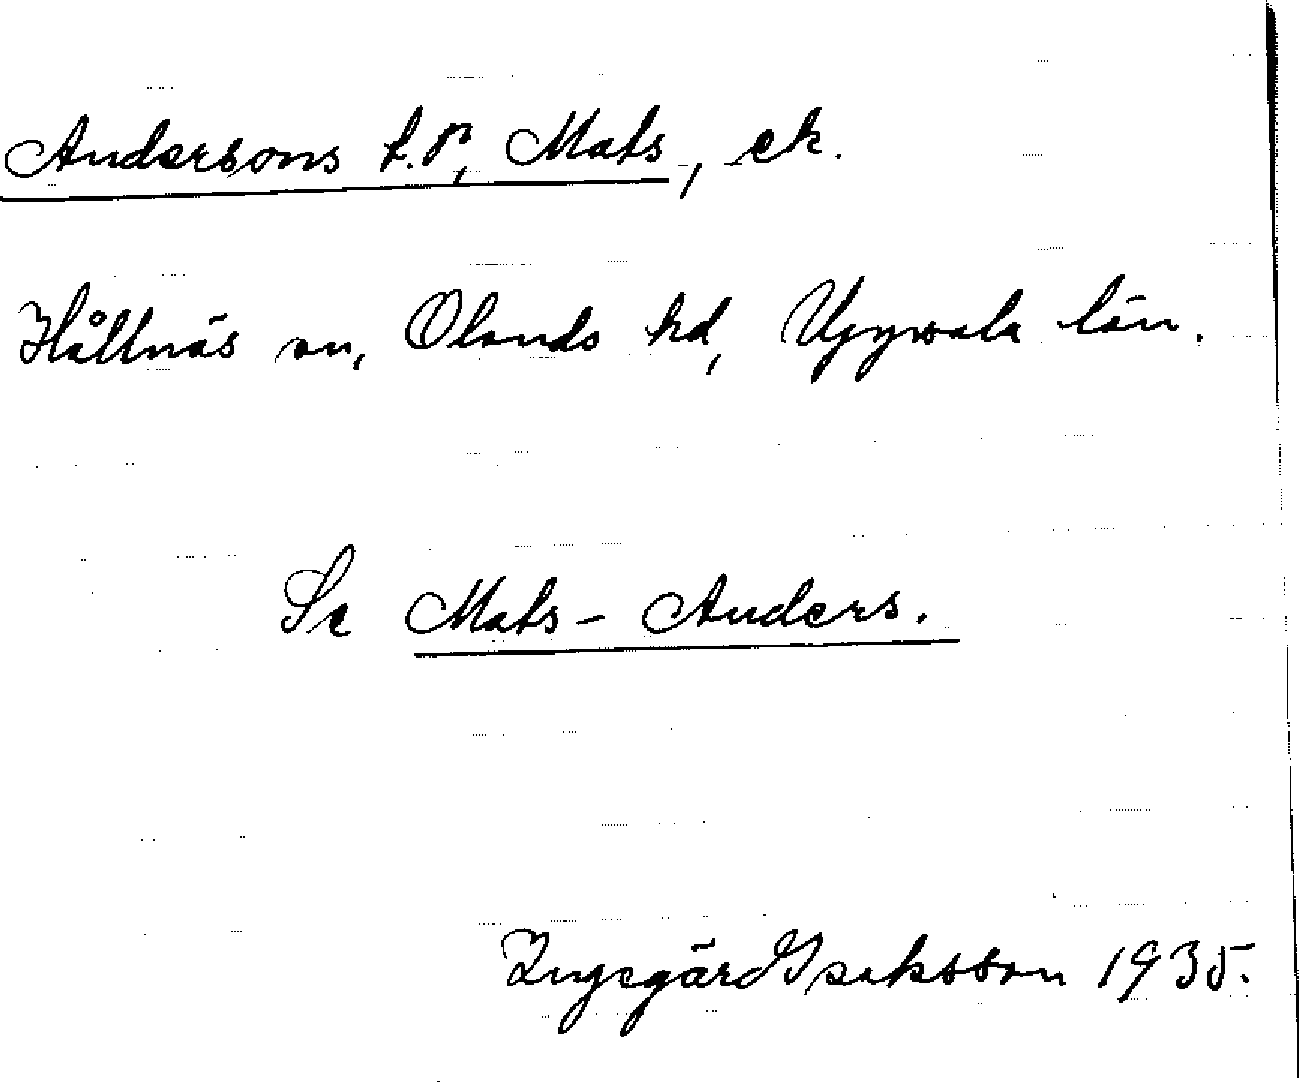 Andersons t.p, Mats, ek.
Hållnäs sn, Olands hd, Uppsala län.
Se Mats-Anders.
Ingegärd Isaksson 1935.